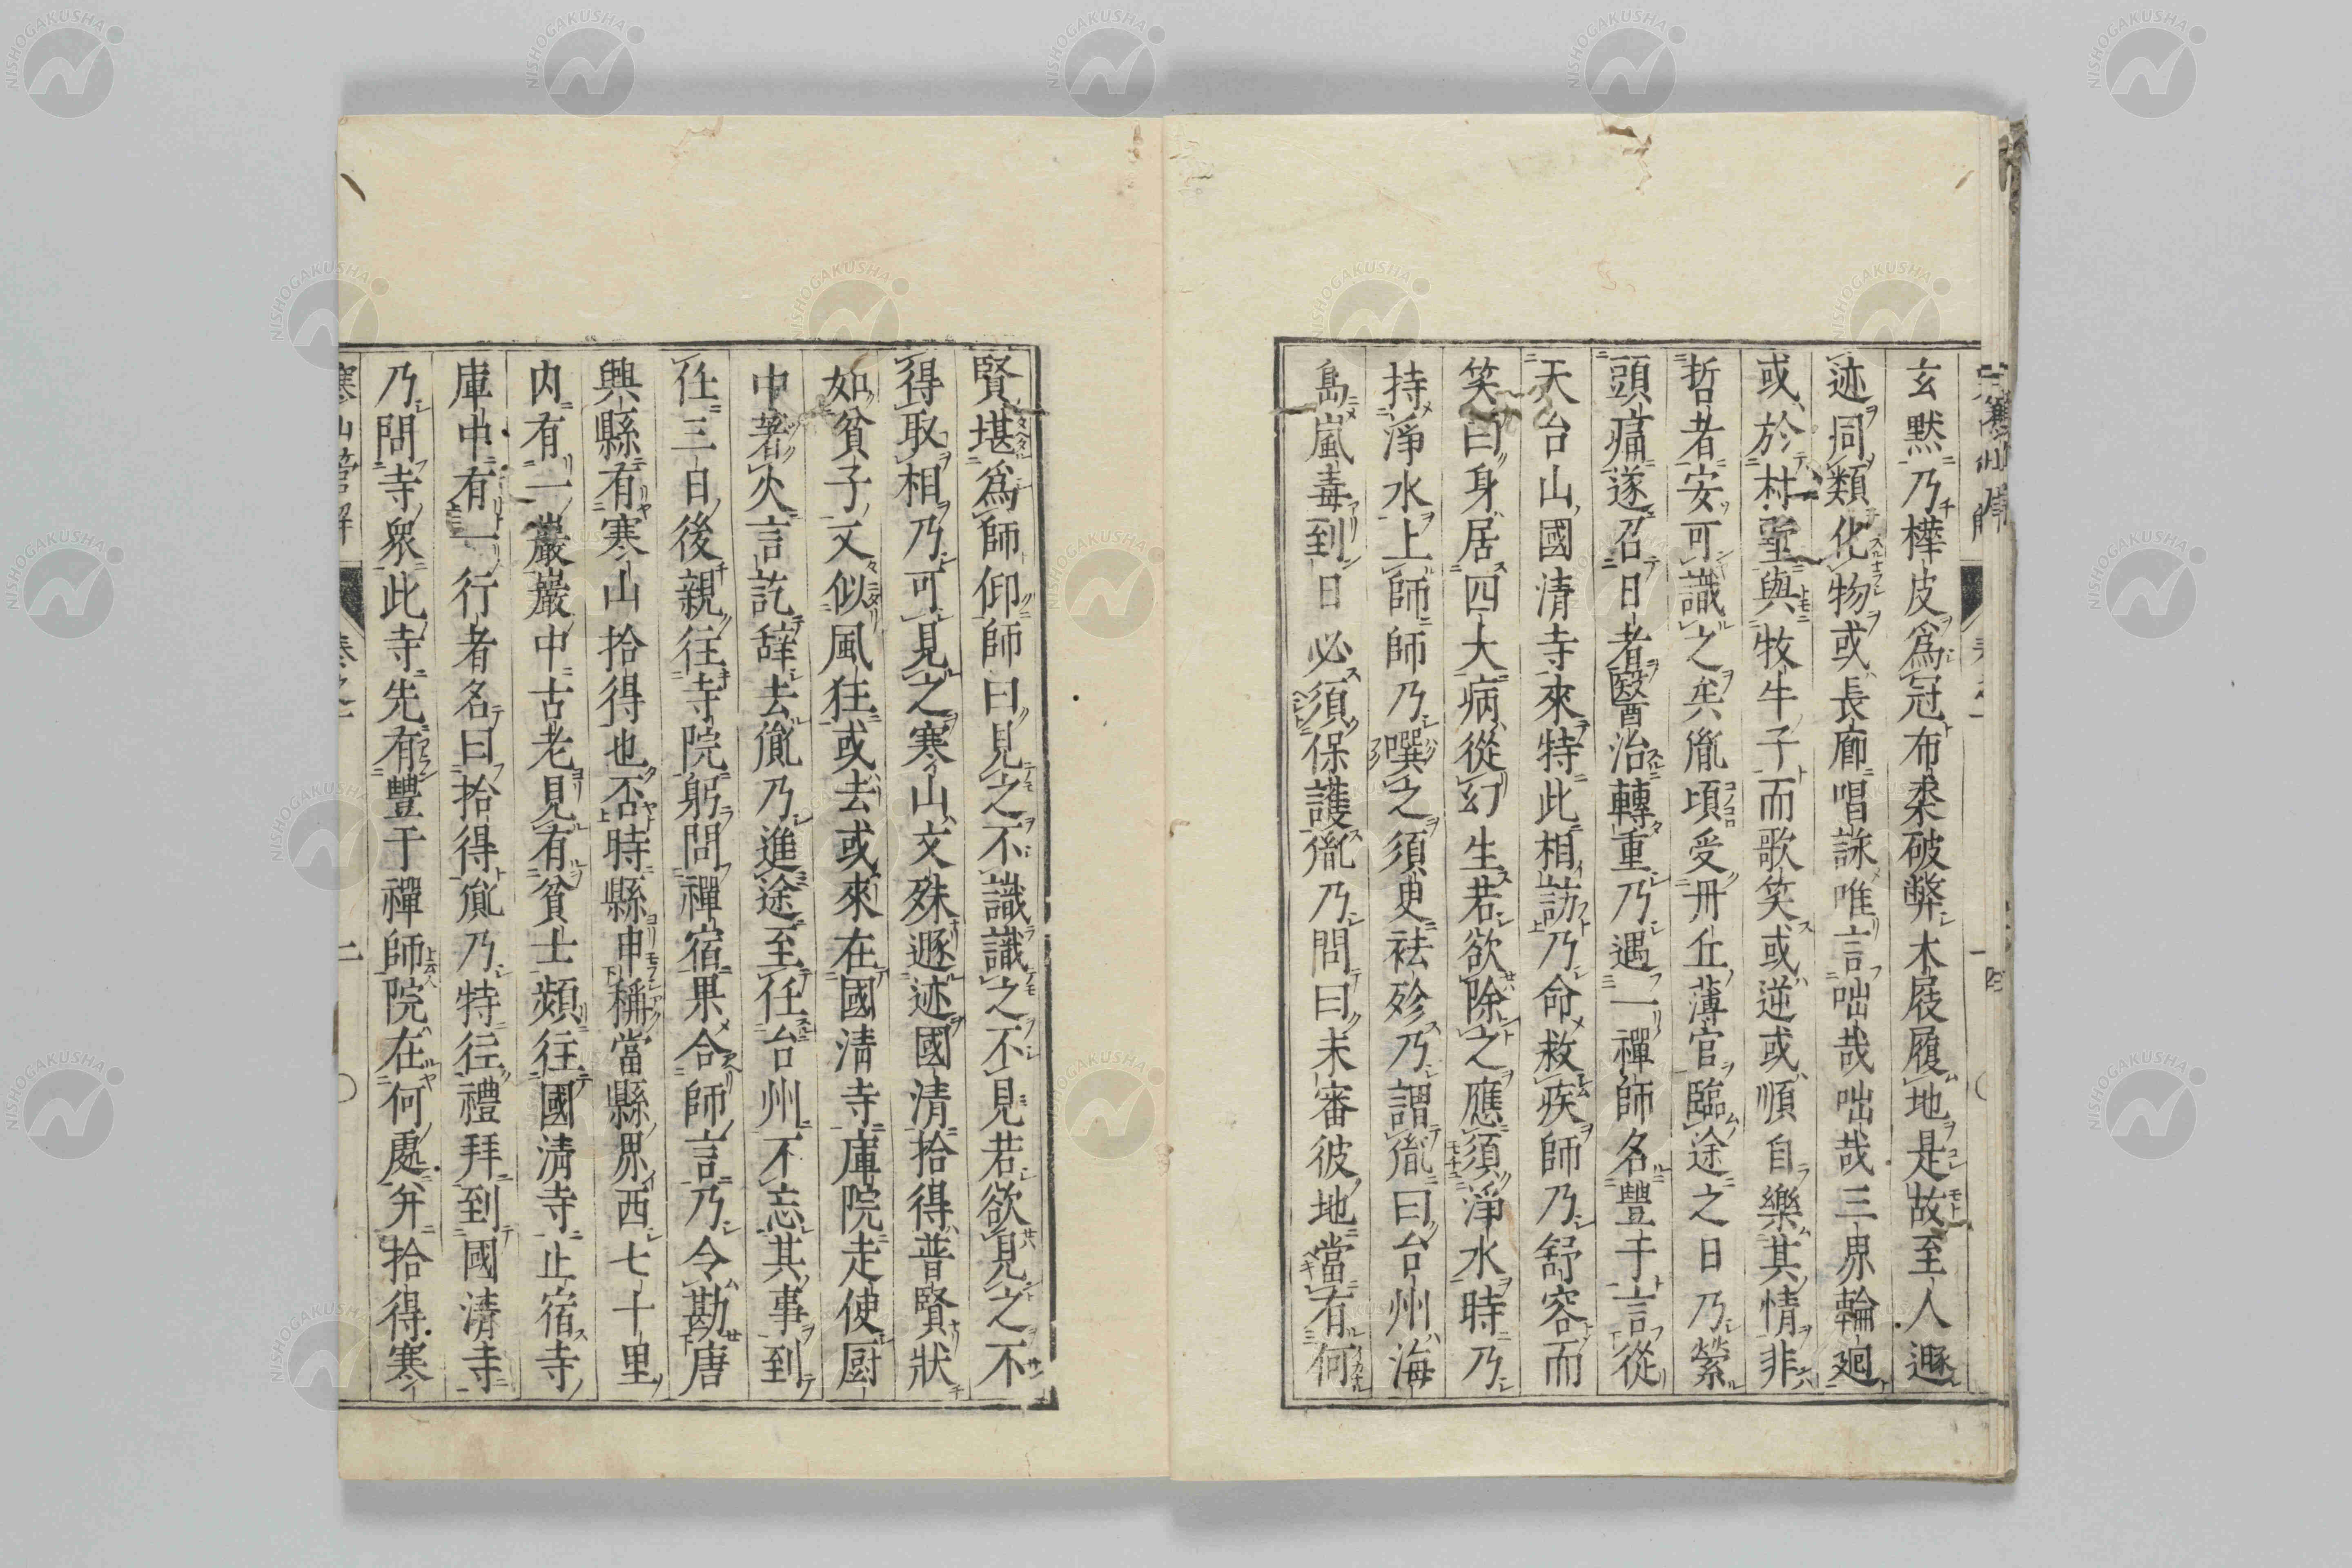 玄默乃樺皮為冠布柔破弊木屐履地是故至人遯
迹同類化物或長廊唱詠唯言咄哉咄哉三界輪廻
或於村墅與牧牛子而歌笑或逆或順自樂其情非
哲者安可識之矣胤頃受丹丘薄宦臨途之日乃縈
頭痛遂召日者醫治轉重乃遇一禪師名豐干言從
天台山國清寺來特此相訪乃命救疾師乃舒容而
笑曰身居四大病從幻生若欲除之應須淨水時乃
持淨水上師師乃噀之須臾袪殄乃謂胤曰台州海
島嵐毒到日必須保護胤乃問曰未審彼地當有何
賢堪爲師仰師曰見之不識識之不見若欲見之不
得取相乃可見之寒山文殊遯迹國清拾得普賢狀
如貧子又似風狂或去或來在國清寺庫院走使厨
中著火言訖辭去胤乃進途至任台州不忘其事到
任三日後親往寺院躬問禪宿果合師言乃令勘唐
興縣有寒山拾得也否時縣申稱當縣界西七十里
内有一巖巖中古老見有貧士頻往國清寺止宿寺
庫中有一行者名曰拾得胤乃特往禮拜到國清寺
乃問寺衆此寺先有豐干禪師院在何處并拾得寒
寒山管解
卷之一
二
NISHOGAKUSHA